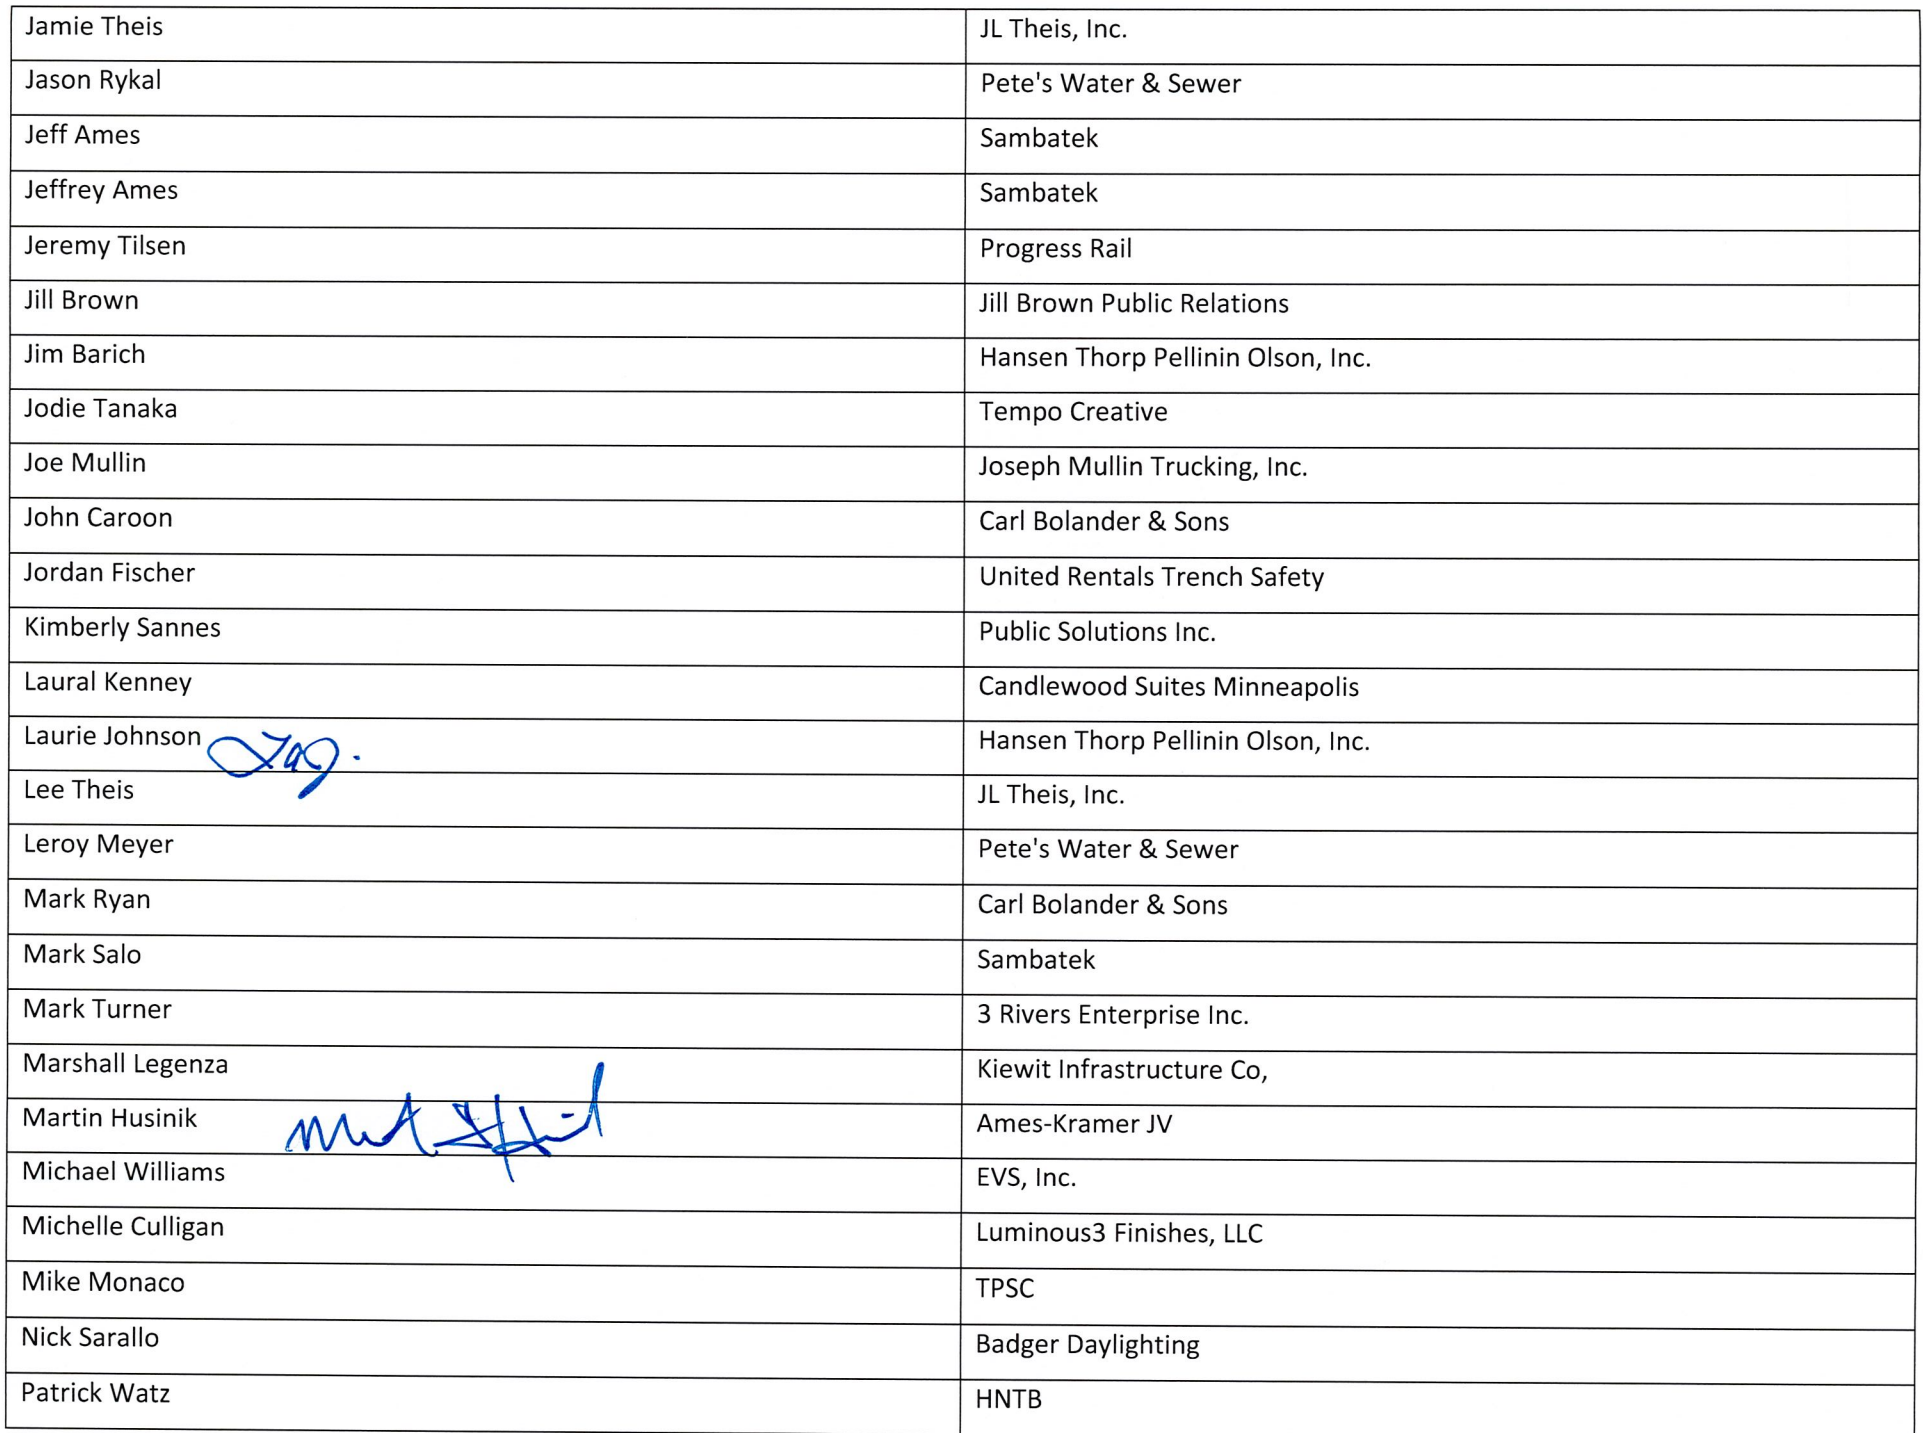 Jamie Theis JL Theis, Inc.
Jason Rykal Pete's Water & Sewer
Jeff Ames Sambatek
Jeffrey Ames Sambatek
Jeremy Tilsen Progress Rail
Jill Brown Jill Brown Public Relations
Jim Barich Hansen Thorp Pellinin Olson, Inc.
Jodie Tanaka Tempo Creative
Joe Mullin Joseph Mullin Trucking, Inc.
John Caroon Carl Bolander & Sons
Jordan Fischer United Rentals Trench Safety
Kimberly Sannes Public Solutions Inc.
Laural Kenney Candlewood Suites Minneapolis
Laurie Johnson Hansen Thorp Pellinin Olson, Inc.
Lee Theis JL Theis, Inc.
Leroy Meyer Pete's Water & Sewer
Mark Ryan Carl Bolander & Sons
Mark Salo Sambatek
Mark Turner 3 Rivers Enterprise Inc.
Marshall Legenza Kiewit Infrastructure Co,
Martin Husinik Ames-Kramer JV
Michael Williams EVS, Inc.
Michelle Culligan Luminous3 Finishes, LLC
Mike Monaco TPSC
Nick Sarallo Badger Daylighting
Patrick Watz HNTB